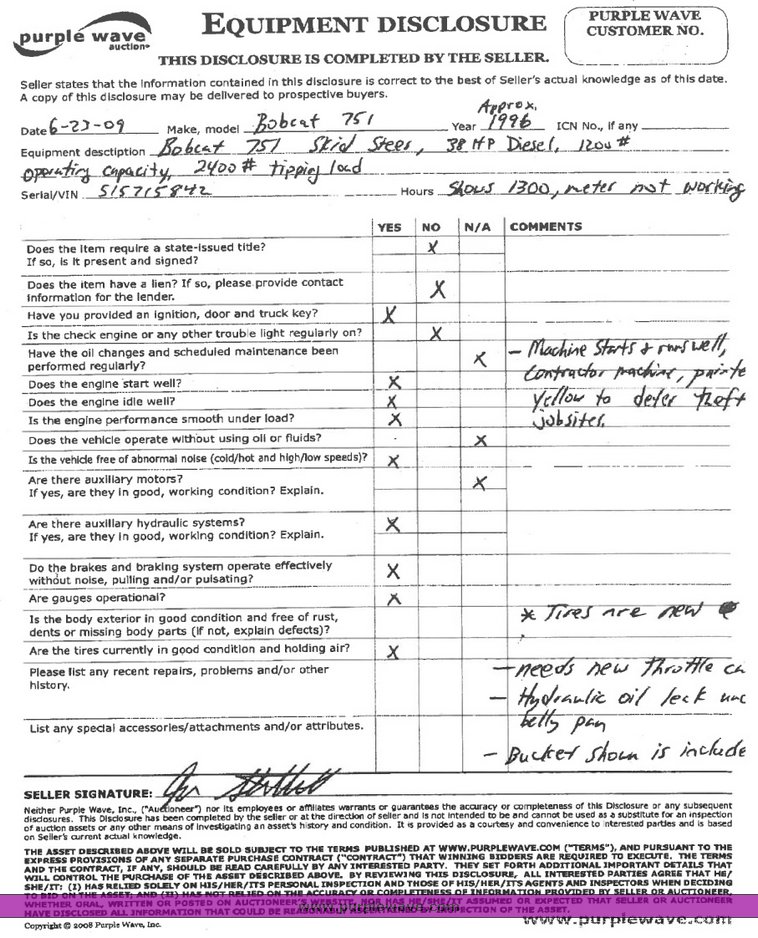 purple wave
auction
EQUIPMENT DISCLOSURE
PURPLE WAVE
CUSTOMER NO.
THIS DISCLOSURE IS COMPLETED BY THE SELLER.
Seller states that the information contained in this disclosure is correct to the best of Seller's actual knowledge as of this date.
A copy of this disclosure may be delivered to prospective buyers.
Approx.
Date 6-23-09 Make, model Bobcat 751 Year 1996 ICN No., if any
Equipment desctiption Bobcat 751 Skid Steer, 38 HP Diesel, 1200#
operating capacity, 2400# tipping load
Serial/VIN 515715842 Hours Shows 1300, meter not working
YES NO N/A COMMENTS
Does the item require a state-issued title? X
If so, is it present and signed?
Does the item have a lien? If so, please provide contact
information for the lender. X
Have you provided an ignition, door and truck key? X
Is the check engine or any other trouble light regularly on? X
Have the oil changes and scheduled maintenance been
performed regularly? X
- Machine starts & runs well,
contractor machine, painte
yellow to defer theft
jobsites.
Does the engine start well? X
Does the engine idle well? X
Is the engine performance smooth under load? X
Does the vehicle operate without using oil or fluids? X
Is the vehicle free of abnormal noise (cold/hot and high/low speeds)? X
Are there auxiliary motors? X
If yes, are they in good, working condition? Explain.
Are there auxiliary hydraulic systems? X
If yes, are they in good, working condition? Explain.
Do the brakes and braking system operate effectively
without noise, pulling and/or pulsating? X
Are gauges operational? X
Is the body exterior in good condition and free of rust,
dents or missing body parts (if not, explain defects)?
* Tires are new
Are the tires currently in good condition and holding air? X
Please list any recent repairs, problems and/or other
history.
- needs new throttle ca
- Hydraulic oil leak und
belly pan
List any special accessories/attachments and/or attributes.
- Bucket shown is include
SELLER SIGNATURE:
Neither Purple Wave, Inc., ("Auctioneer") nor its employees or affiliates warrants or guarantees the accuracy or completeness of this Disclosure or any subsequent
disclosures. This Disclosure has been completed by the seller or at the direction of seller and is not intended to be and cannot be used as a substitute for an inspection
of auction assets or any other means of investigating an asset's history and condition. It is provided as a courtesy and convenience to interested parties and is based
on Seller's current actual knowledge.
THE ASSET DESCRIBED ABOVE WILL BE SOLD SUBJECT TO THE TERMS PUBLISHED AT WWW.PURPLEWAVE.COM ("TERMS"), AND PURSUANT TO THE
EXPRESS PROVISIONS OF ANY SEPARATE PURCHASE CONTRACT ("CONTRACT") THAT WINNING BIDDERS ARE REQUIRED TO EXECUTE. THE TERMS
AND THE CONTRACT, IF ANY, SHOULD BE READ CAREFULLY BY ANY INTERESTED PARTY. THEY SET FORTH ADDITIONAL IMPORTANT DETAILS THAT
WILL CONTROL THE PURCHASE OF THE ASSET DESCRIBED ABOVE. BY REVIEWING THIS DISCLOSURE, ALL INTERESTED PARTIES AGREE THAT HE/
SHE/IT: (I) HAS RELIED SOLELY ON HIS/HER/ITS PERSONAL INSPECTION AND THOSE OF HIS/HER/ITS AGENTS AND INSPECTORS WHEN DECIDING
TO BID ON THE ASSET; AND (II) HAS NOT RELIED ON THE ACCURACY OR COMPLETENESS OF INFORMATION PROVIDED BY SELLER OR AUCTIONEER,
WHETHER ORAL, WRITTEN OR POSTED ON AUCTIONEER'S WEBSITE, NOR HAS HE/SHE/IT ASSUMED OR EXPECTED THAT SELLER OR AUCTIONEER
HAVE DISCLOSED ALL INFORMATION THAT COULD BE REASONABLY ASCERTAINED BY INSPECTION OF THE ASSET.
Copyright © 2008 Purple Wave, Inc.
www.purplewave.com